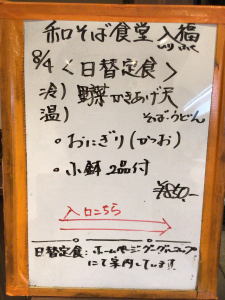 和そば食堂 入福
いり ふく
8/4 <日替定食>
冷) 野菜かきあげ天
温) そば・うどん
・おにぎり(かつお)
・小鉢 2品付
¥850-
入口こちら
日替定食:ホームページ・グーグルマップ
にて案内しています